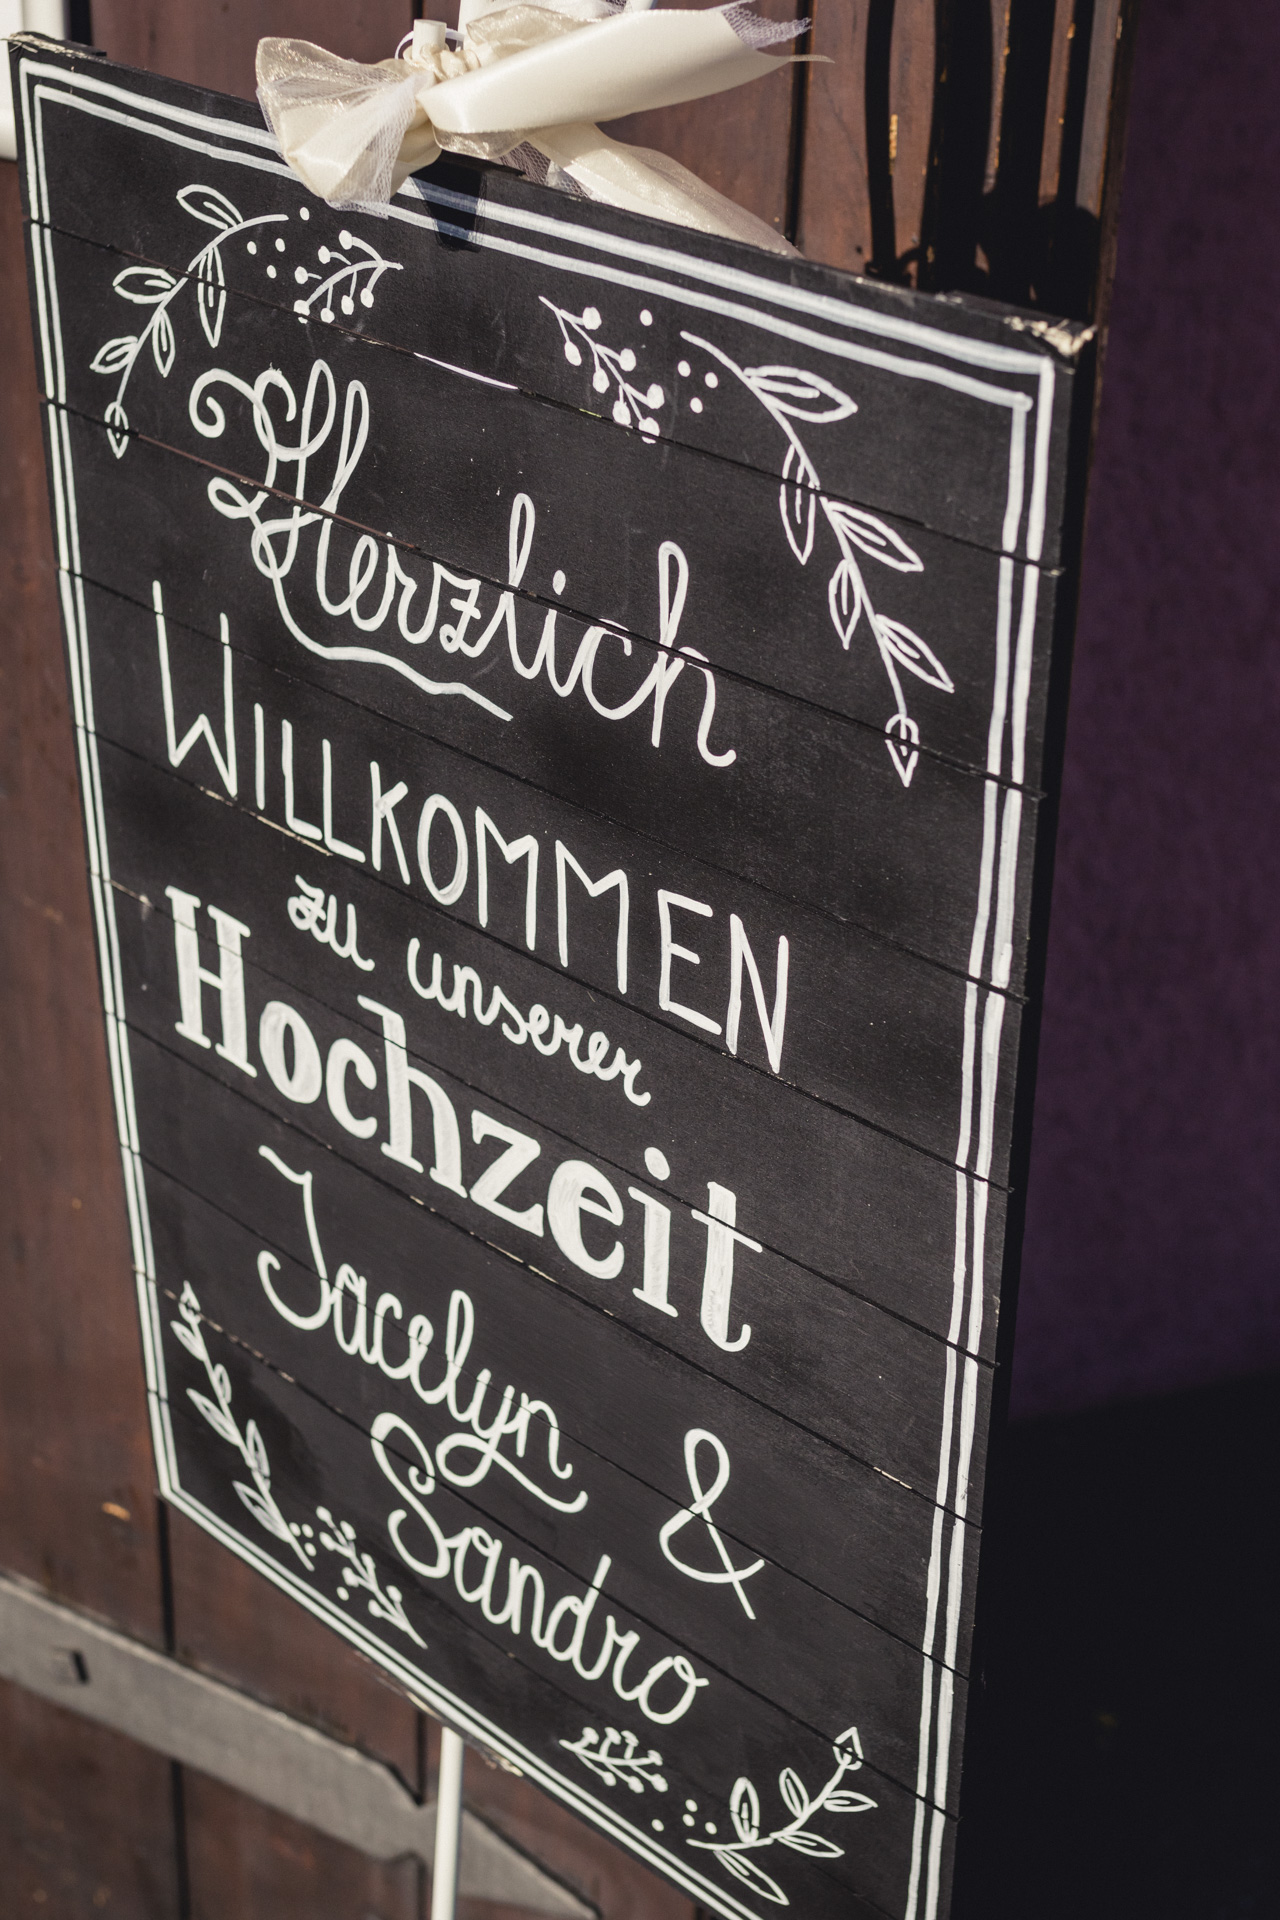 Herzlich
WILLKOMMEN
zu unserer
Hochzeit
Jacelyn &
Sandro